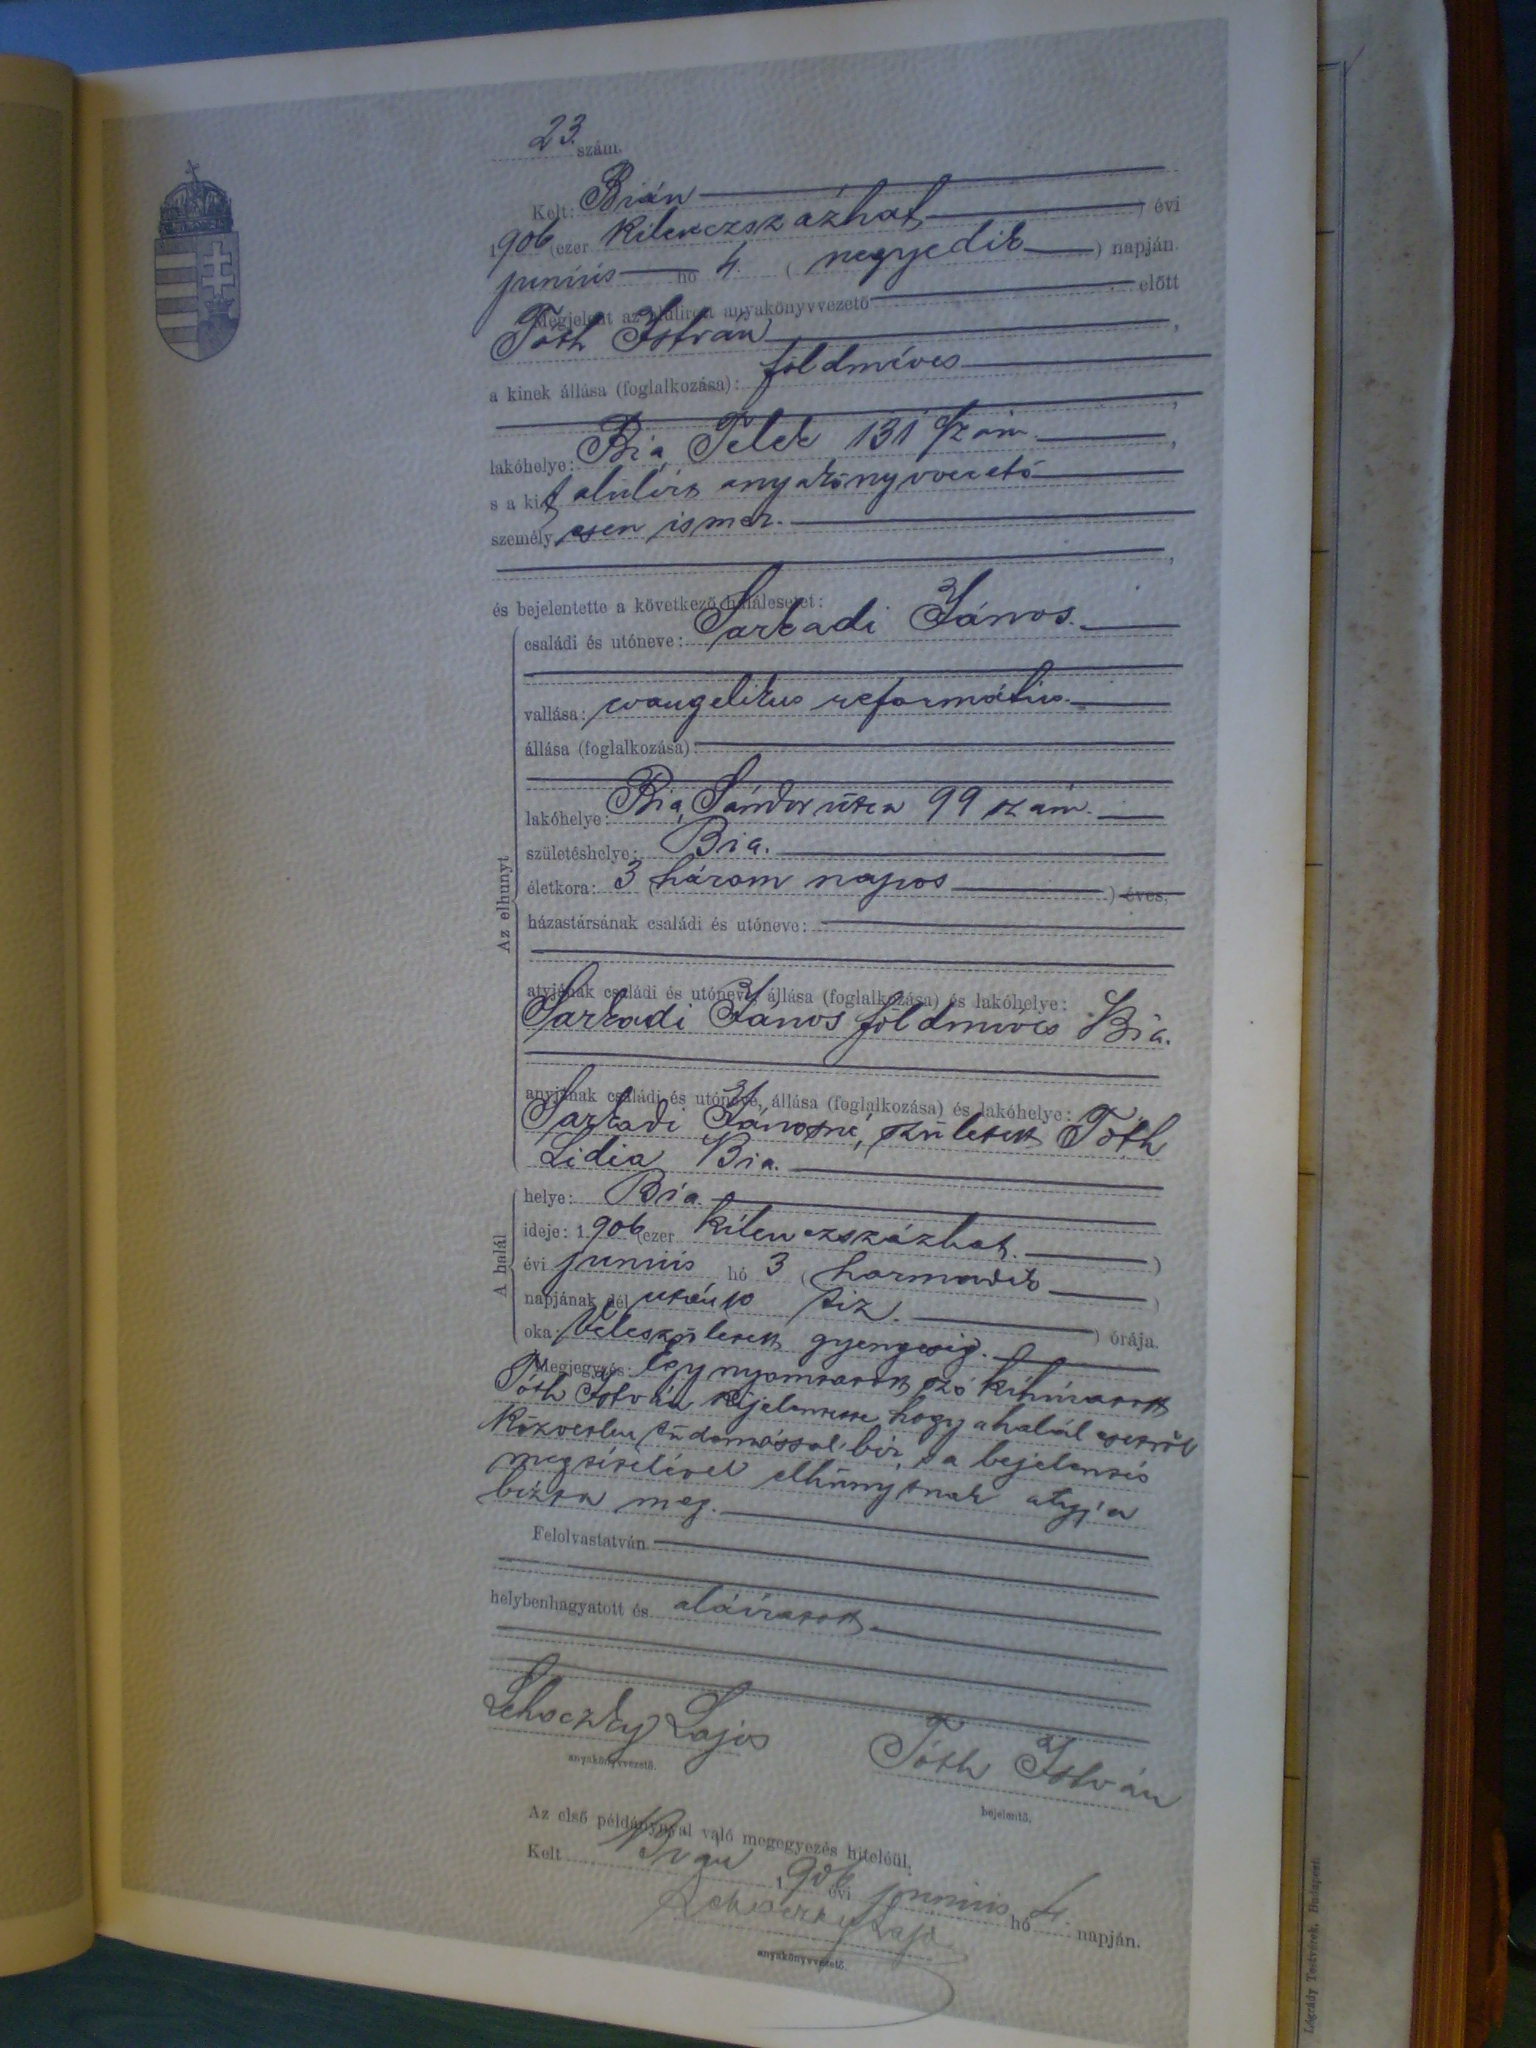 23. szám.
Kelt: Bián
1906 (ezer kilenczszázhat) évi
junius hó 4. (negyedik) napján.
Megjelent az alulirott anyakönyvvezető előtt
Tóth István,
a kinek állása (foglalkozása): földmíves
,
lakóhelye: Bia, Telek 131 szám.,
s a kit alulírt anyakönyvvezető
személyesen ismer.
,
és bejelentette a következő halálesetet:
Az elhunyt
családi és utóneve: Sarkadi János.
vallása: evangelikus református.
állása (foglalkozása):
lakóhelye: Bia, Sándor útca 99 szám.
születéshelye: Bia.
életkora: 3 (három napos) éves,
házastársának családi és utóneve:
atyjának családi és utóneve, állása (foglalkozása) és lakóhelye:
Sarkadi János földmíves Bia.
anyjának családi és utóneve, állása (foglalkozása) és lakóhelye:
Sarkadi Jánosné, született Tóth
Lidia Bia.
A halál
helye: Bia.
ideje: 1906 (ezer kilenczszázhat.)
évi junius hó 3 (harmadik)
napjának dél után 10 tiz.) órája.
oka: Veleszületett gyengeség.
Megjegyzés: Egy nyomtatott szó kihúzatott
Tóth István kijelentette, hogy a halál esetről
közvetlen túdomással bír, s a bejelentés
megtételével elhúnytnak atyja
bízta meg.
Felolvastatván
helybenhagyatott és aláíratott.
Lehoczky Lajos
anyakönyvvezető.
Tóth István
bejelentő.
Az első példánynyal való megegyezés hiteléül.
Kelt Bián 1906 évi junius hó 4. napján.
Lehoczky Lajos
anyakönyvvezető.
Légrády Testvérek, Budapest.